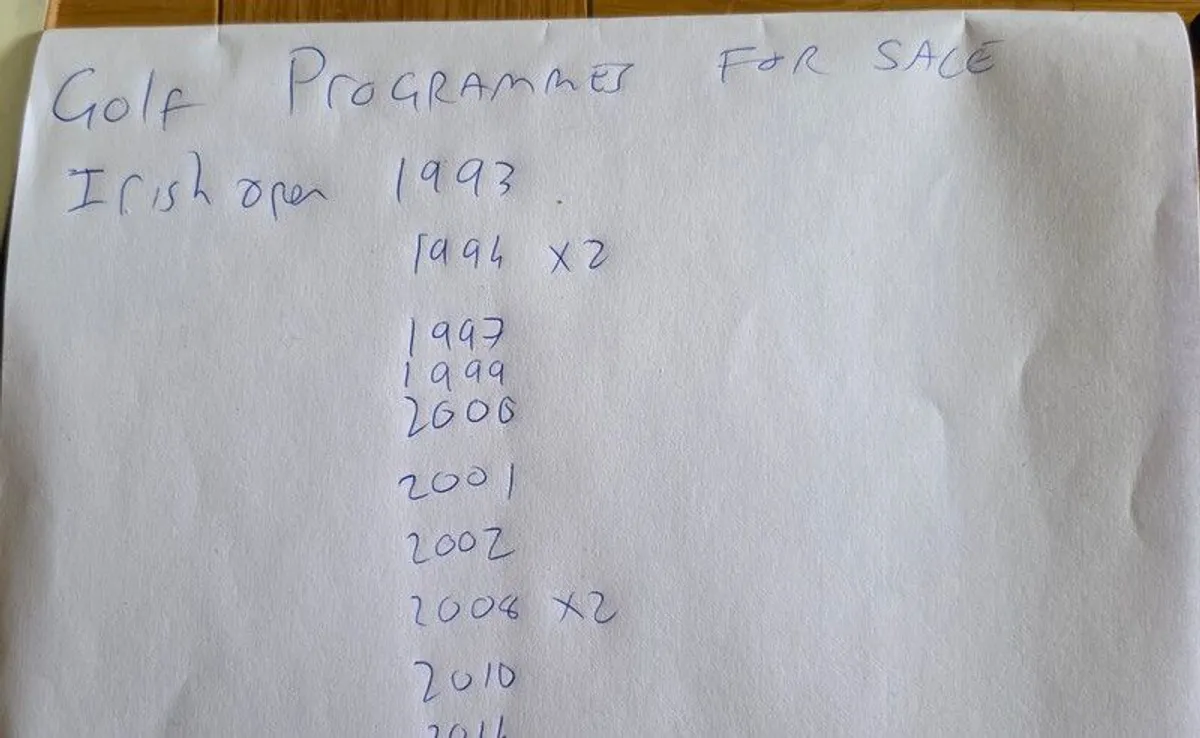 Golf PROGRAMMES FOR SALE
Irish open 1993
1994 x2
1997
1999
2000
2001
2002
2008 x2
2010